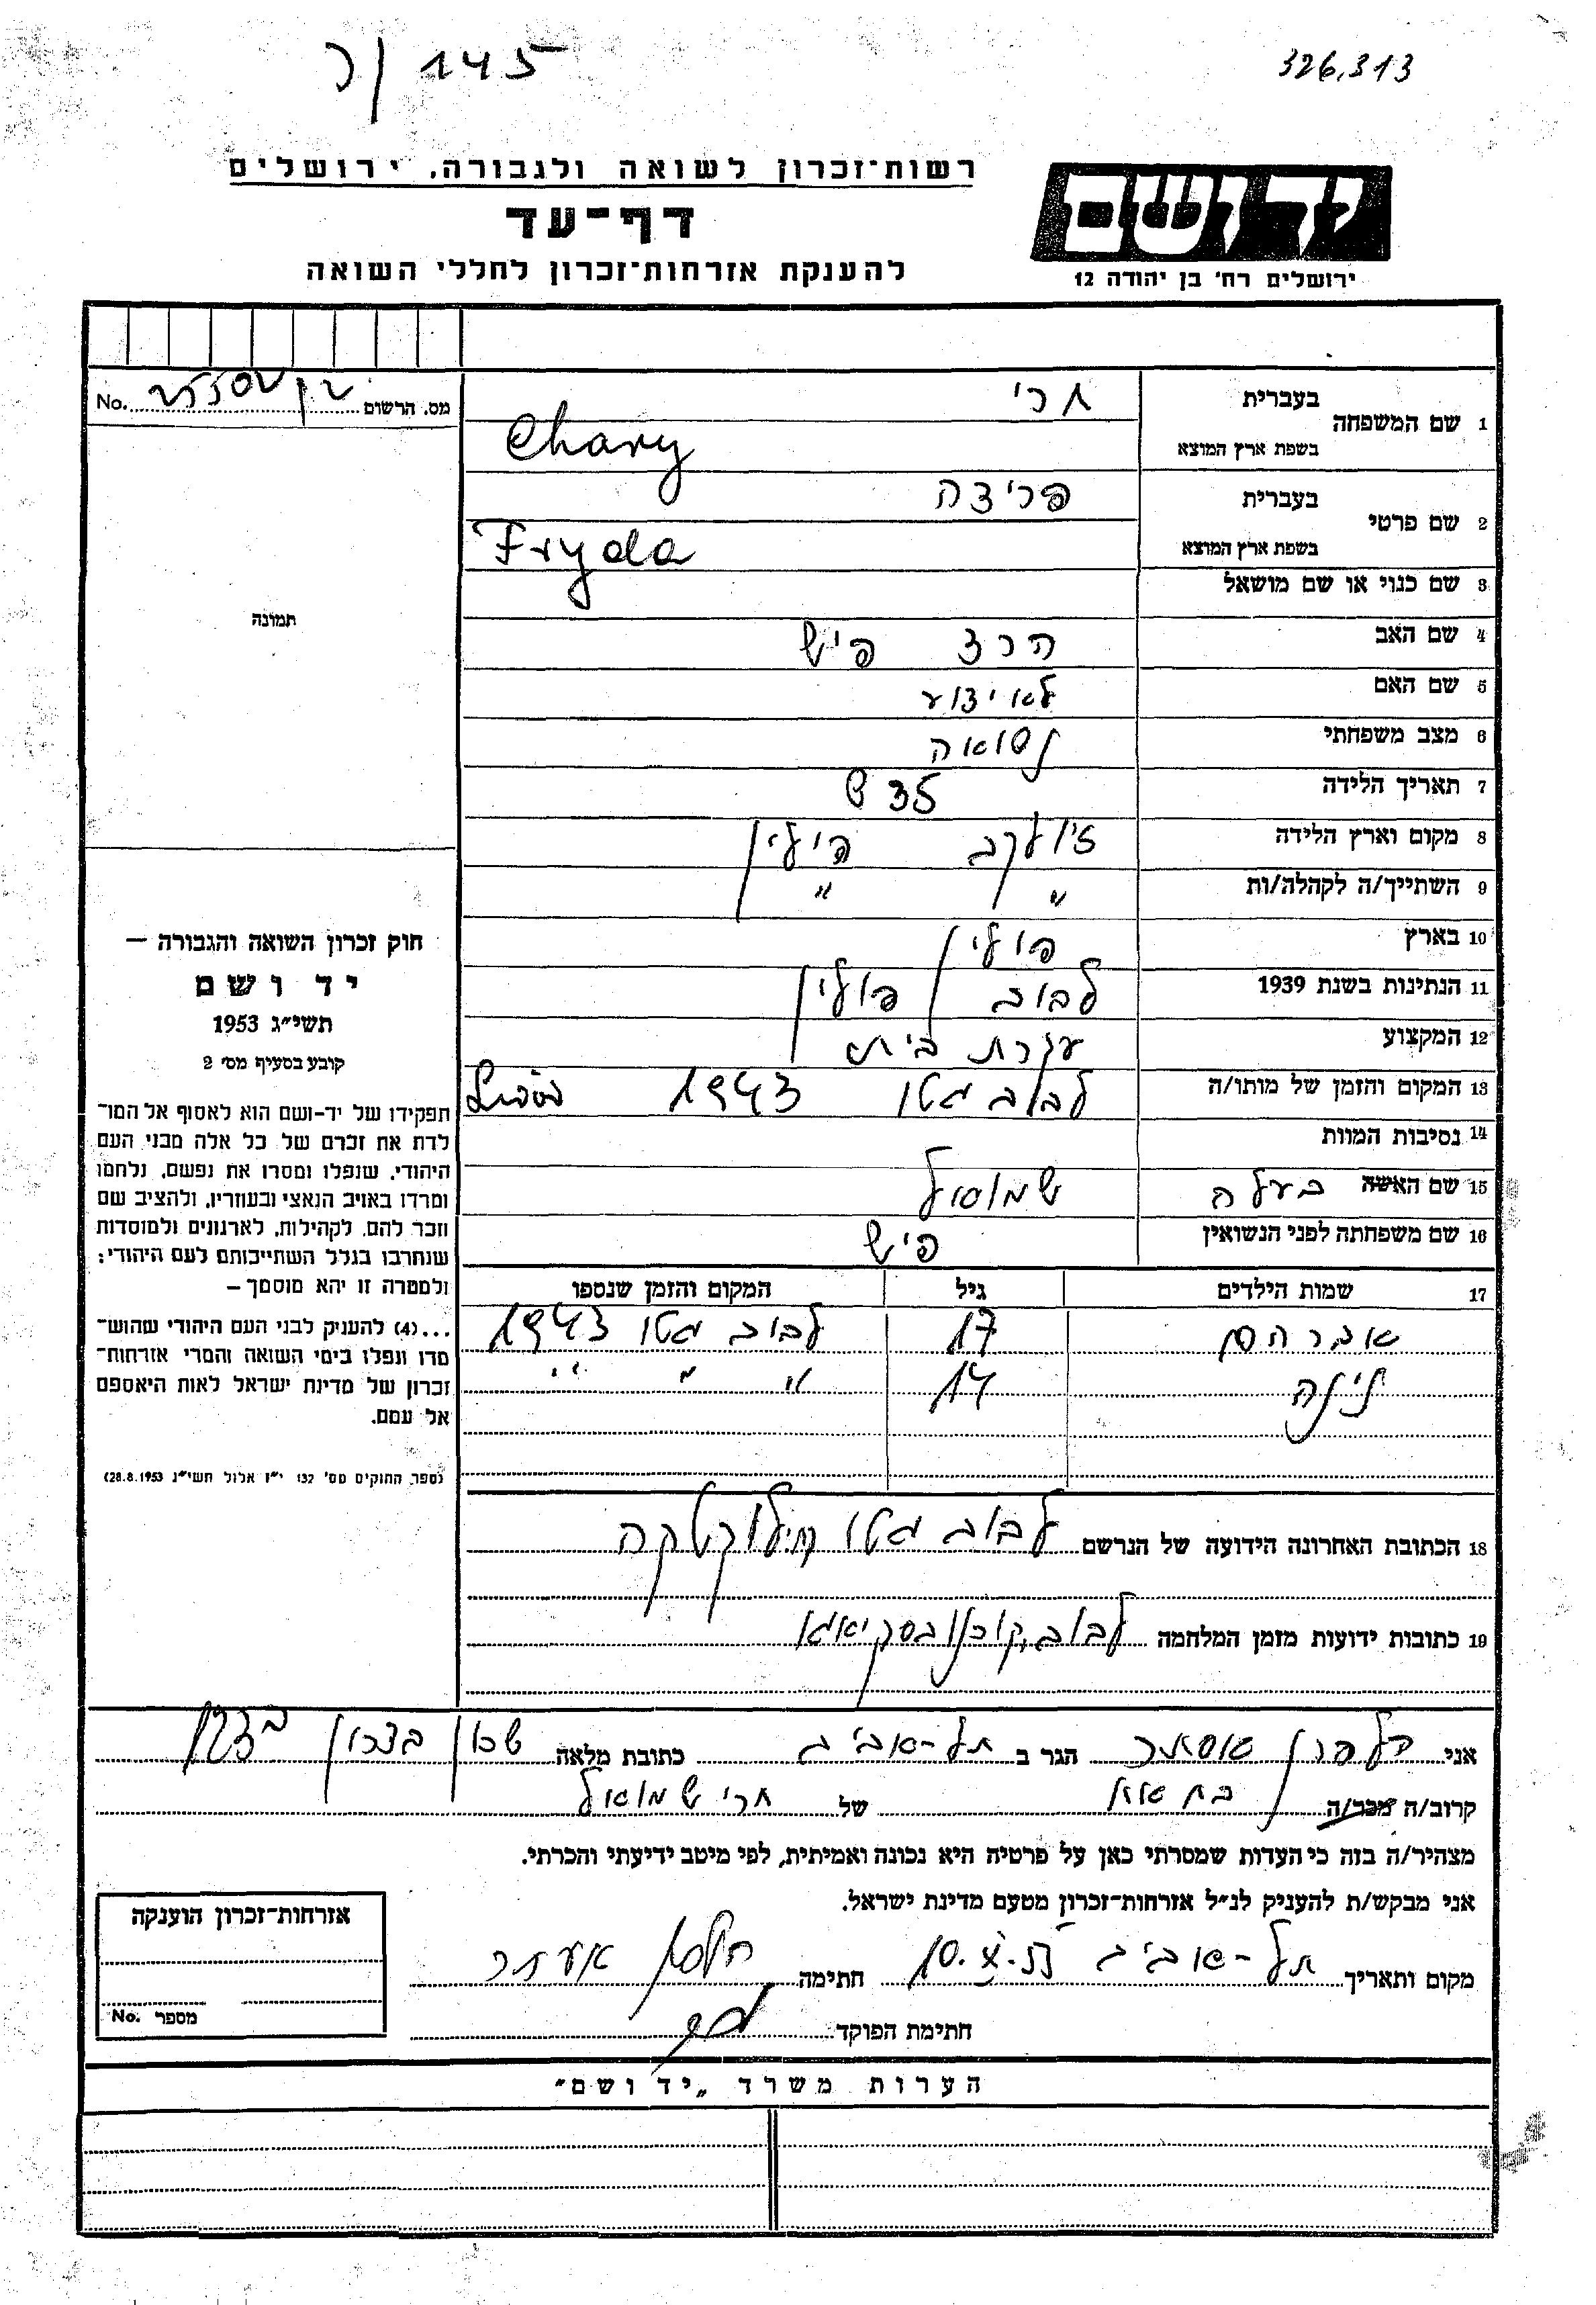 ר/145
326.313
רשות־זכרון לשואה ולגבורה. ירושלים
דף־עד
להענקת אזרחות־זכרון לחללי השואה
יד ושם
ירושלים רח' בן יהודה 12
מס. הרשום No.
1 שם המשפחה בעברית חרי
בשפת ארץ המוצא Chary
2 שם פרטי בעברית פרידה
בשפת ארץ המוצא Fryda
3 שם כנוי או שם מושאל
תמונה
4 שם האב הרצ פיש
5 שם האם לא ידוע
6 מצב משפחתי נשואה
7 תאריך הלידה 35 ש
8 מקום וארץ הלידה פולין
9 השתייך/ה לקהלה/ות " "
10 בארץ פולין
11 הנתינות בשנת 1939 לבוב פולין
12 המקצוע עקרת בית
13 המקום והזמן של מותו/ה לבוב גטו 1943
14 נסיבות המוות
15 שם האשה בעלה שמואל
16 שם משפחתה לפני הנשואין פיש
17 שמות הילדים גיל המקום והזמן שנספו
אברהם 17 לבוב גטו 1943
לינה 14 " " "
18 הכתובת האחרונה הידועה של הנרשם לבוב גטו
19 כתובות ידועות מזמן המלחמה לבוב
חוק זכרון השואה והגבורה —
יד ושם
תשי״ג 1953
קובע בסעיף מס׳ 2
תפקידו של יד-ושם הוא לאסוף אל המו־
לדת את זכרם של כל אלה מבני העם
היהודי, שנפלו ומסרו את נפשם, נלחמו
ומרדו באויב הנאצי ובעוזריו, ולהציב שם
וזכר להם, לקהילות, לארגונים ולמוסדות
שנחרבו בגלל השתייכותם לעם היהודי;
ולמטרה זו יהא מוסמך —
...(4) להעניק לבני העם היהודי שהוש־
מדו ונפלו בימי השואה והמרי אזרחות־
זכרון של מדינת ישראל לאות היאספם
אל עמם.
(ספר החוקים מס׳ 132 י״ז אלול תשי״ג 28.8.1953)
אני הלפרן אסתר הגר ב תל-אביב כתובת מלאה שכון
קרוב/ה מכר/ה בת אח של חרי שמואל
מצהיר/ה בזה כי העדות שמסרתי כאן על פרטיה היא נכונה ואמיתית, לפי מיטב ידיעתי והכרתי.
אני מבקש/ת להעניק לנ״ל אזרחות־זכרון מטעם מדינת ישראל.
מקום ותאריך תל-אביב 10.X.55 חתימה
חתימת הפוקד
אזרחות־זכרון הוענקה
מספר No.
הערות משרד „יד ושם״